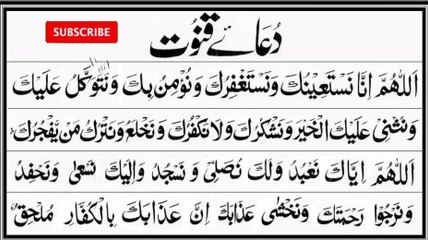 SUBSCRIBE
دُعَائے قنوت
اَللّٰهُمَّ اِنَّا نَسْتَعِيْنُكَ وَنَسْتَغْفِرُكَ وَنُؤْمِنُ بِكَ وَنَتَوَكَّلُ عَلَيْكَ
وَنُثْنِىْ عَلَيْكَ الْخَيْرَ وَنَشْكُرُكَ وَلَا نَكْفُرُكَ وَنَخْلَعُ وَنَتْرُكُ مَنْ يَّفْجُرُكَ
اَللّٰهُمَّ اِيَّاكَ نَعْبُدُ وَلَكَ نُصَلِّىْ وَنَسْجُدُ وَاِلَيْكَ نَسْعٰى وَنَحْفِدُ
وَنَرْجُوْا رَحْمَتَكَ وَنَخْشٰى عَذَابَكَ اِنَّ عَذَابَكَ بِالْكُفَّارِ مُلْحِقٌ